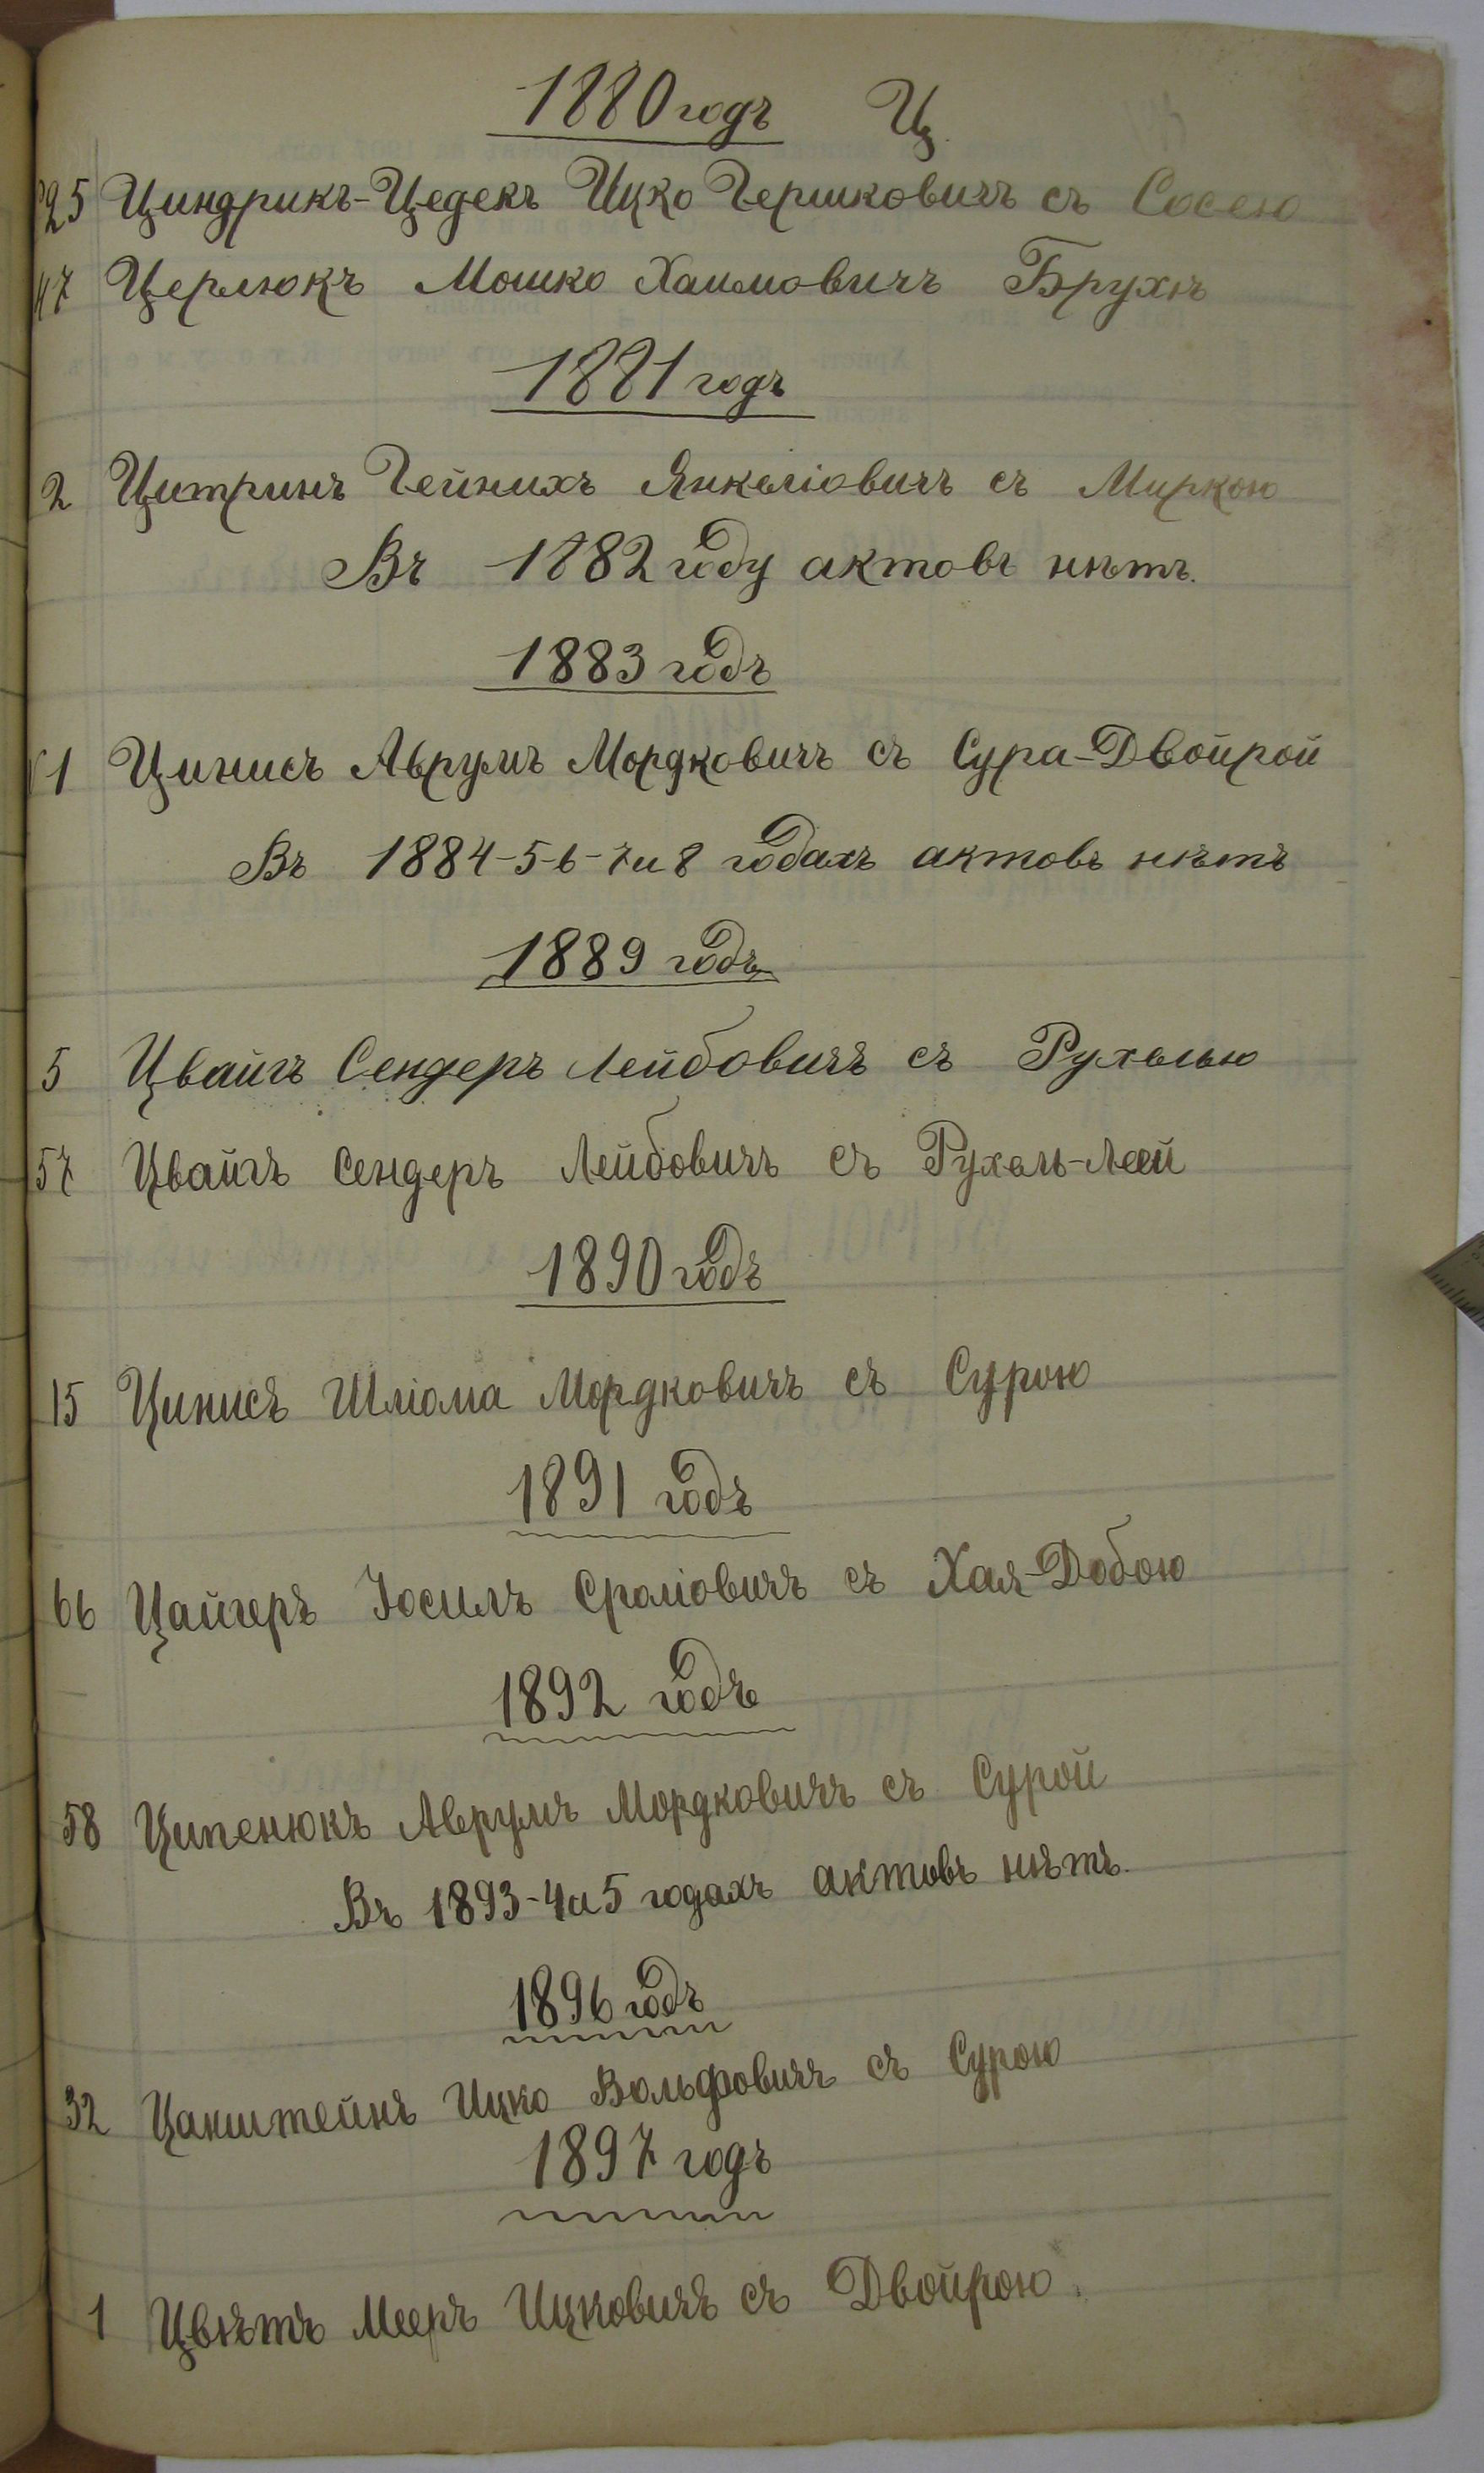 1880 годъ Ц.
25 Циндрикъ-Цедекъ Ицко Гершковичъ съ Сосею
47 Церлюкъ Мошко Хаимовичъ Брухѣ
1881 годъ
2 Цитринъ Гейнихъ Янкеліовичъ съ Миркою
Въ 1882 году актовъ нѣтъ.
1883 годъ
1 Цинисъ Аврумъ Мордковичъ съ Сура-Двойрой
Въ 1884-5-6-7 и 8 годахъ актовъ нѣтъ
1889 годъ
5 Цвайгъ Сендеръ Лейбовичъ съ Рухелью
57 Цвайгъ Сендеръ Лейбовичъ съ Рухель-Леей
1890 годъ
15 Цинисъ Шліома Мордковичъ съ Сурою
1891 годъ
66 Цайгеръ Іосилъ Сроліовичъ съ Хая-Добою
1892 годъ
58 Ципенюкъ Аврумъ Мордковичъ съ Сурой
Въ 1893-4 и 5 годахъ актовъ нѣтъ.
1896 годъ
32 Цанштейнъ Ицко Вольфовичъ съ Сурою
1897 годъ
1 Цвѣтъ Мееръ Ицковичъ съ Двойрою.